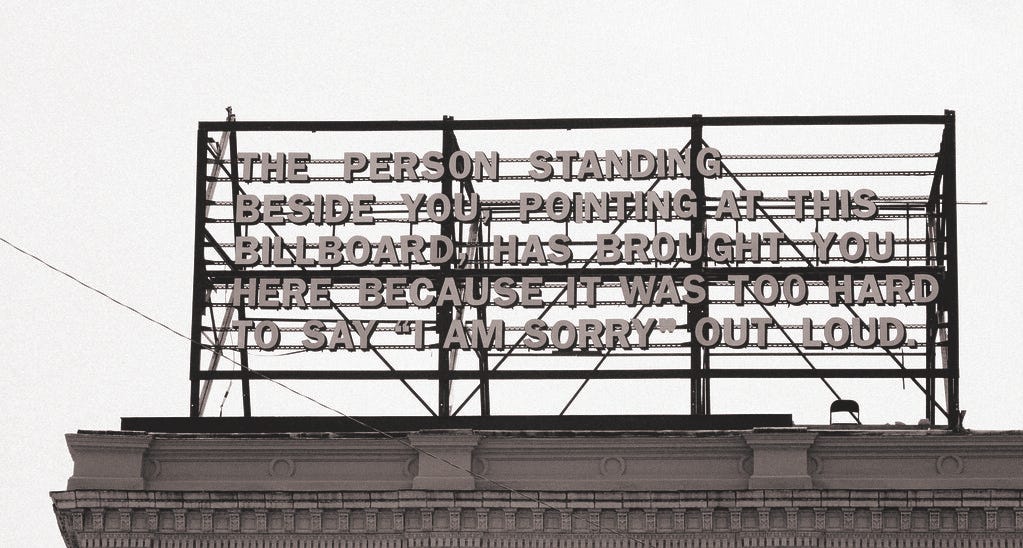 THE PERSON STANDING
BESIDE YOU, POINTING AT THIS
BILLBOARD, HAS BROUGHT YOU
HERE BECAUSE IT WAS TOO HARD
TO SAY “I AM SORRY” OUT LOUD.